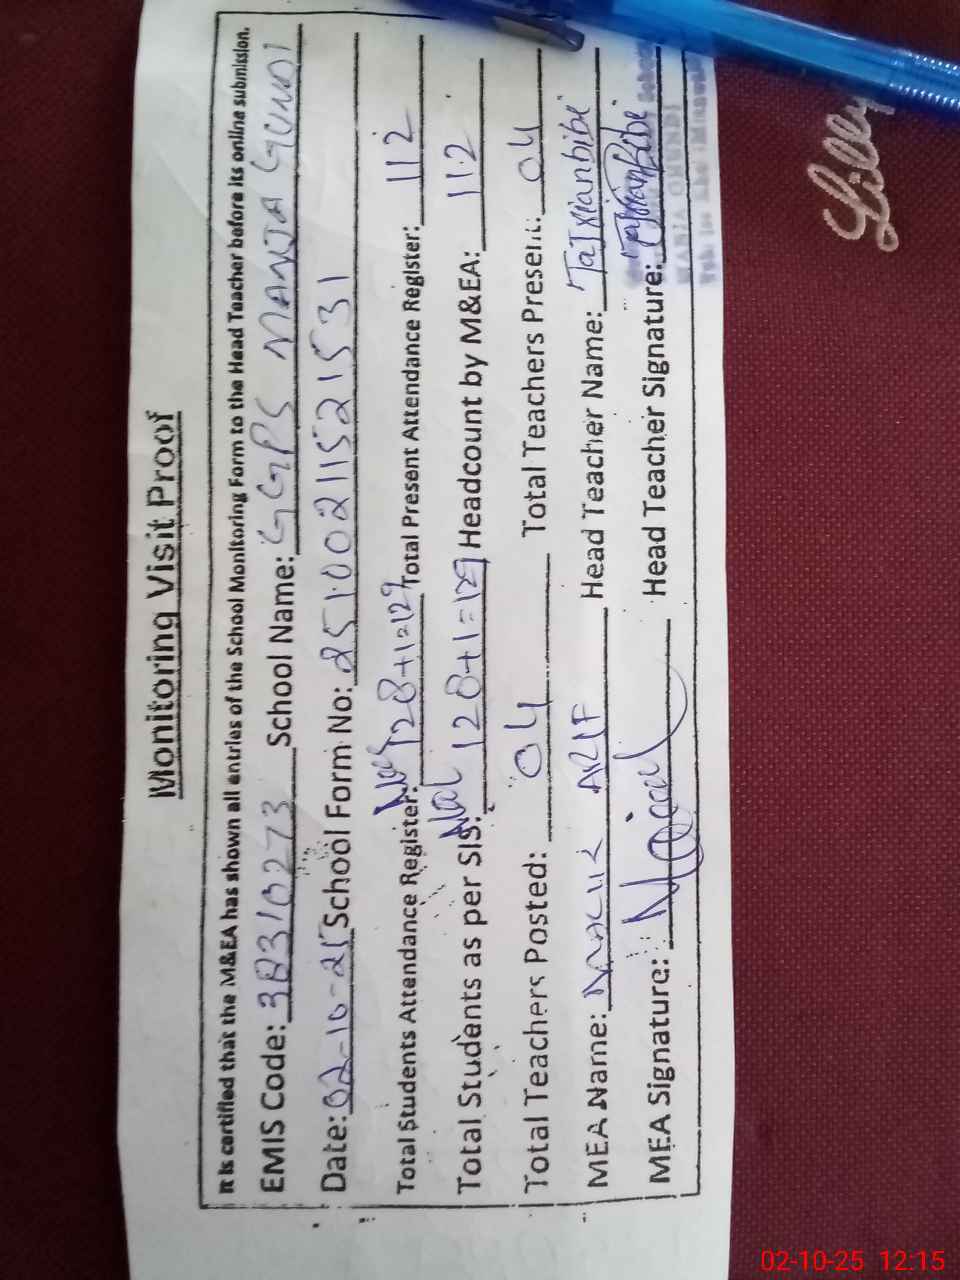 Monitoring Visit Proof
It is certified that the M&EA has shown all entries of the School Monitoring Form to the Head Teacher before its online submission.
EMIS Code: 38310273 School Name: GGPS MANJA GUNDI
Date: 02-10-25 School Form No: 25100211521531
Total Students Attendance Register: 128+1=129 Total Present Attendance Register: 112
Total Students as per SIS: 128+1=129 Headcount by M&EA: 112
Total Teachers Posted: 04 Total Teachers Present: 04
MEA Name: MALIK ARIF Head Teacher Name:
MEA Signature: Head Teacher Signature:
Lilly
02-10-25 12:15